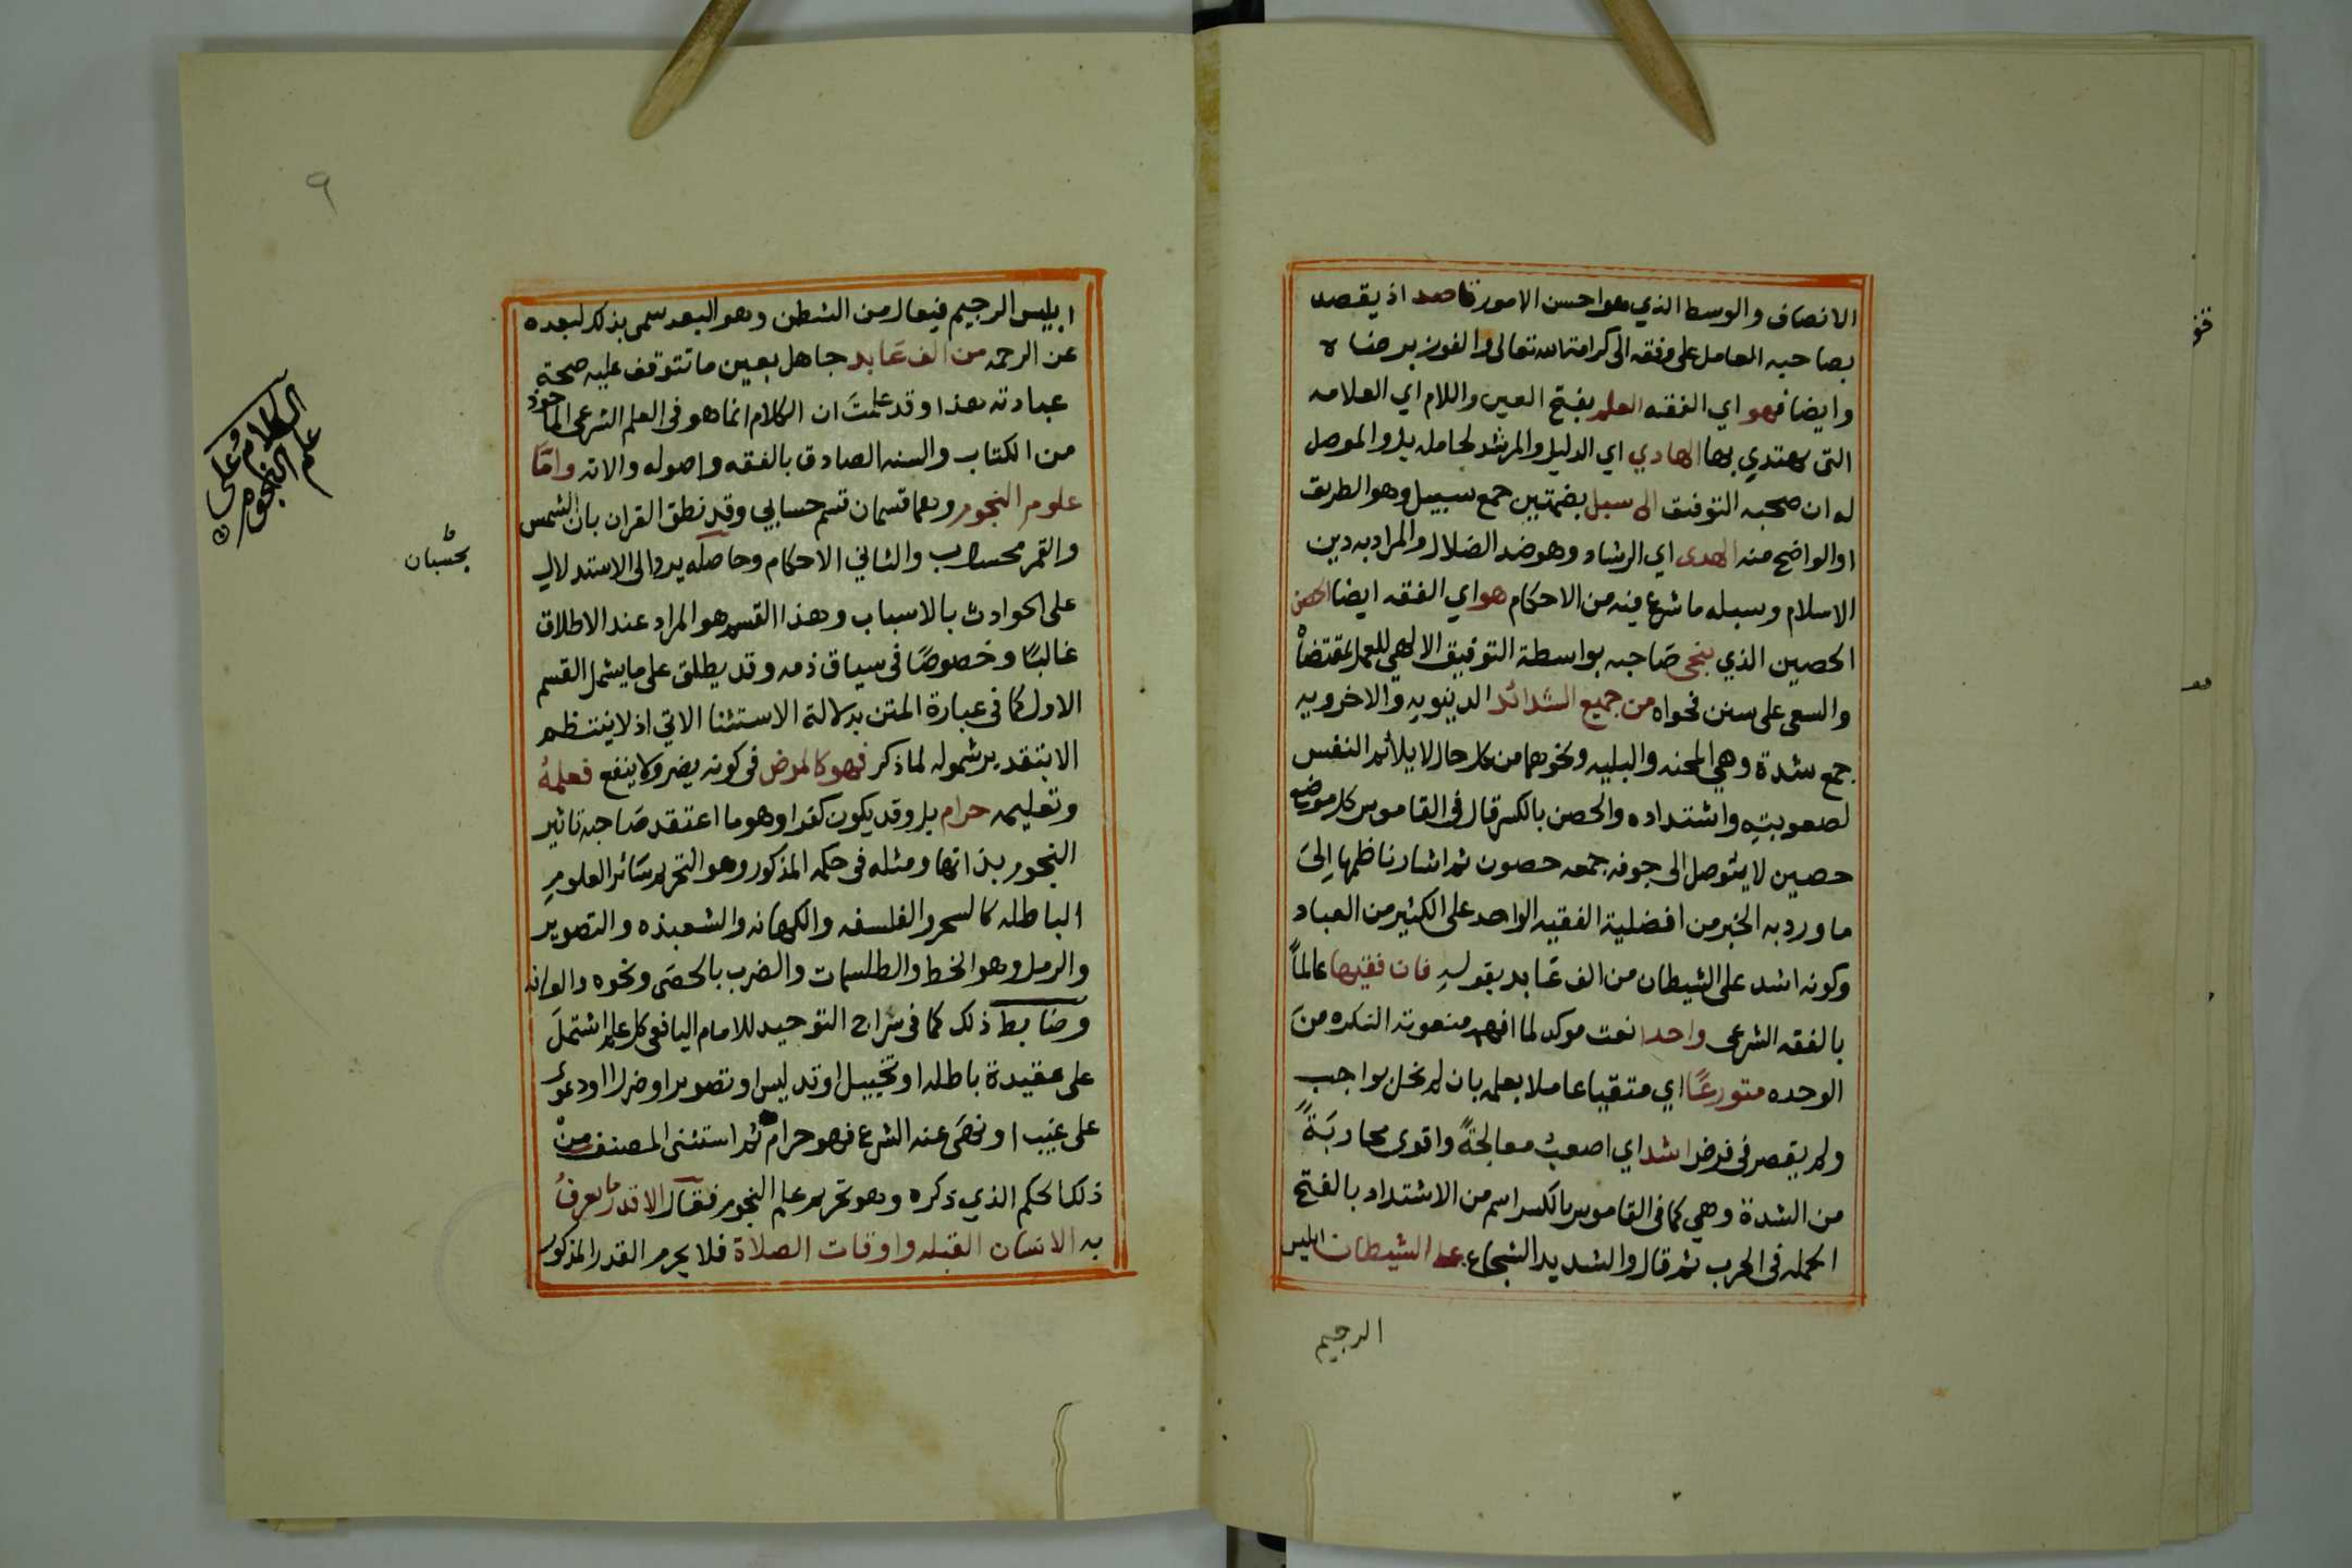 الانصاف والوسط الذي هو احسن الامور قاصد اذ يقصد
بصاحبه العامل على وفقه الى كرامة الله تعالى والفوز برضاه
وايضا فهو اي الفقه العلم بفتح العين واللام اي العلامه
التي يهتدي بها الهادي اي الدليل والمرشد لحامله بل والموصل
له ان صحبه التوفيق الى سبل بضمتين جمع سبيل وهو الطريق
او الواضح منه الهدى اي الرشاد وهو ضد الضلال والمراد به دين
الاسلام وسبله ما شرع فيه من الاحكام هو اي الفقه ايضا الحصن
الحصين الذي ينجي صَاحبه بواسطة التوفيق الالهي للعمل بمقتضاه
والسعي على سنن فحواه من جميع الشدائد الدينويه والاخرويه
جمع شدة وهي المحنه والبليه ونحوهما من كل حال لا يلائم النفس
لصعوبته واشتداده والحصن بالكسر قال في القاموس كل موضع
حصين لا يتوصل الى جوفه جمعه حصون ثم اشار ناظمها إلىَ
ما ورد به الخبر من افضلية الفقيه الواحد على الكثير من العباد
وكونه اشد على الشيطان من الف عَابد بقولهِ فان فقيها عالماً
بالفقه الشرعي واحدا نعت موكد لما افهمه منعوته النكره منَ
الوحده متورعًا اي متقيا عاملا بعلمه بان لم يخل بواجب
ولم يقصر في فرض اشد اي اصعبُ معالجةً واقوى محاربَةً
من الشدة وهي كما في القاموس بالكسر اسم من الاشتداد بالفتح
الحمله في الحرب ثم قال والشديد الشجاع على الشيطان ابليس
الرجيم
٩
ابليس الرجيم فيعال من الشطن وهو البعد سمى بذلك لبعده
عن الرحمه من الف عَابد جاهل بعين ما تتوقف عليه صحة
عبادته هذا وقد علمتَ ان الكلام انما هو في العلم الشرعي الماخوذ
من الكتاب والسنه الصادق بالفقه واصوله والاته وامَّا
علوم النجوم وهما قسمان قسم حسابي وقد نطق القران بان الشمس
والقمر بحساب والثاني الاحكام وحاصله يرد الى الاستدلال
على الحوادث بالاسباب وهذا القسم هو المراد عند الاطلاق
غالبًا وخصوصًا في سياق ذمه وقد يطلق على ما يشمل القسم
الاول كما في عبارة المتن بدلالة الاستثنا الاتي اذ لا ينتظم
الا بتقدير شموله لما ذكر فهو كالمرض في كونه يضر ولا ينفع فعلمهُ
وتعليمه حرام بل وقد يكون كفرا وهو ما اعتقد صَاحبه تاثير
النجوم بذاتها ومثله في حكمه المذكور وهو التحريم سَائر العلومِ
الباطله كالسحر والفلسفه والكهانه والشعبذه والتصوير
والرمل وهو الخط والطلسمات والضرب بالحصَى ونحوه
وضَابط ذلك كما في سراج التوحيد للامام اليافعي كل علم اشتملَ
على عقيدة باطله او تخييل او تدليس او تصوير او ضرر او دعوى
على غيب او نهَى عنه الشرع فهو حرام ثم استثنى المصنف منْ
ذلك الحكم الذي ذكره وهو تحريم علم النجوم فقال الا قدر ما يعرفُ
به الانسان القبله واوقات الصلاة فلا يحرم القدر المذكور
الكلام على
علم النجوم
بحسْبان